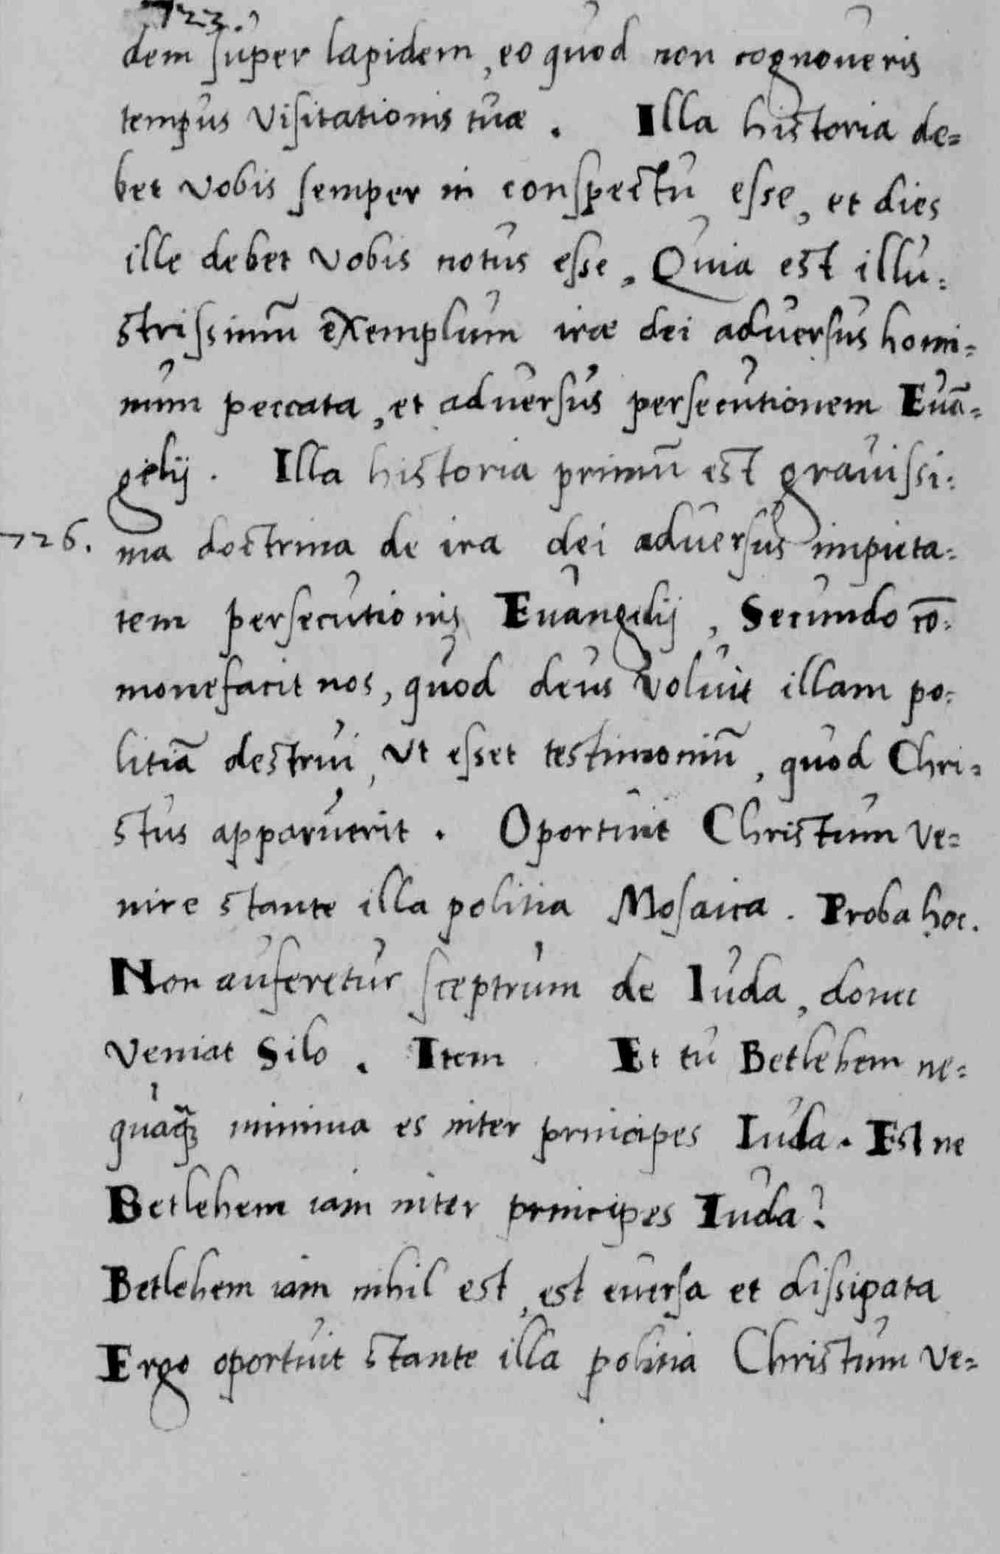 723.
dem super lapidem, eo quod non cognoueris
tempus Visitationis tuæ. Illa historia de=
bet vobis semper in conspectu esse, et dies
ille debet vobis notus esse, Quia est illu=
strissimū exemplum iræ dei aduersus homi=
num peccata, et aduersus persecutionem Euā=
gelij. Illa historia primū est grauissi=
726. ma doctrina de ira dei aduersus impieta=
tem persecutionis Euangelij, Secundo cō=
monefacit nos, quod deus voluit illam po=
litiā destrui, Vt esset testimoniū, quod Chri=
stus apparuerit. Oportuit Christum ve=
nire stante illa politia Mosaica. Proba hoc.
Non auferetur sceptrum de Iuda, donec
veniat Silo. Item Et tu Betlehem ne=
quaq̃ minima es inter principes Iuda. Est ne
Betlehem iam inter principes Iuda?
Betlehem iam nihil est, est euersa et dissipata
Ergo oportuit stante illa politia Christum ve=